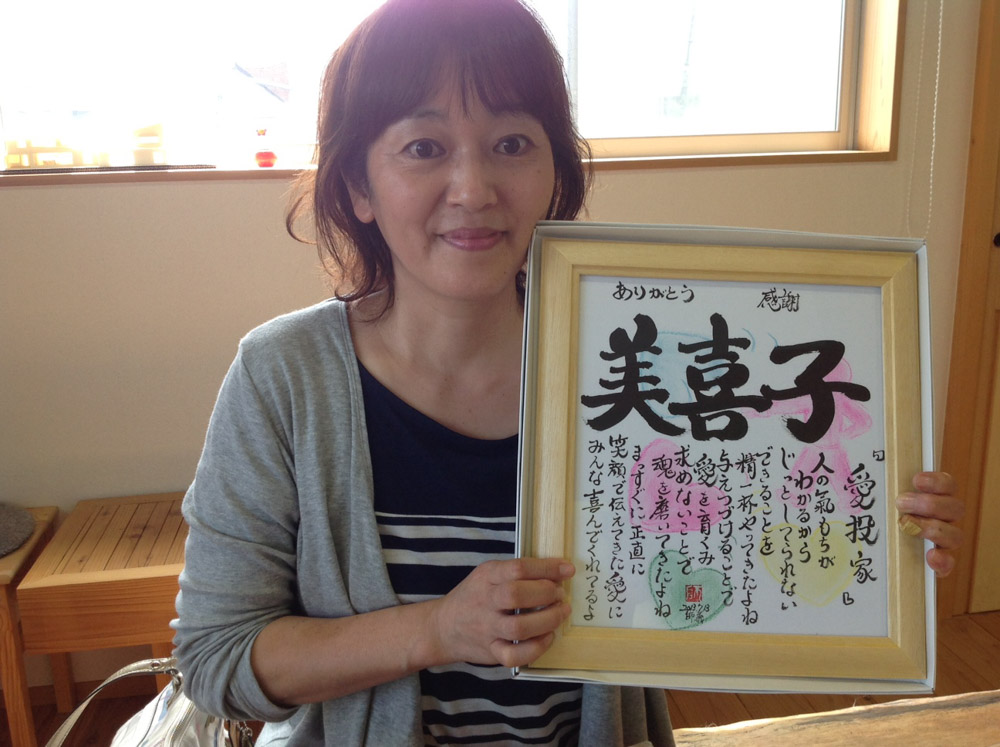 ありがとう
感謝
美喜子
『愛投家』
人の氣もちが
わかるから
じっとしてられない
できることを
精一杯やってきたよね
与えつづけることで
愛を育くみ
求めないことで
魂を磨いてきたよね
まっすぐに正直に
笑顔で伝えてきた愛に
みんな喜んでくれてるよ